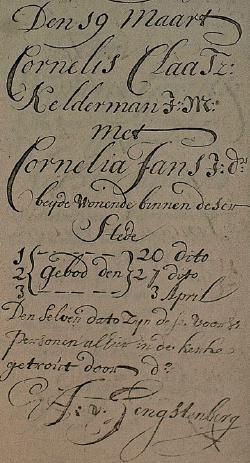 Den 19 Maart
Cornelis Claasz:
Kelderman J: M:
met
Cornelia Jans J: dr
beyde Wonende binnen deser
Stede
1 20 dito
2 Gebod den 27 dito
3 3 April
Den selven dato Zijn de voors
Personen alhier in de kerke
getrout door ds
A: v: Tengstenberg